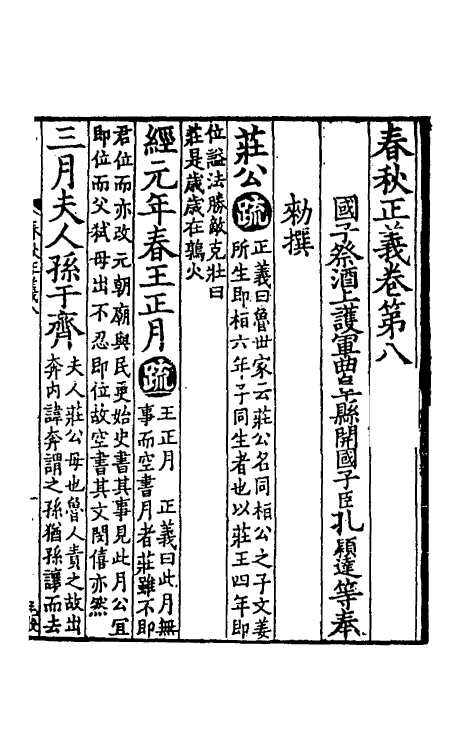 春秋正義卷第八
國子祭酒上護軍曲阜縣開國子臣孔穎達等奉
勑撰
莊公疏正義曰魯世家云莊公名同桓公之子文姜
所生即桓六年子同生者也以莊王四年即
位謚法勝敵克壯曰
莊是歲歲在鶉火
經元年春王正月疏王正月　正義曰此月無
事而空書月者莊雖不即
君位而亦改元朝廟與民更始史書其事見此月公宜
即位而父弒母出不忍即位故空書其文閔僖亦然
三月夫人孫于齊夫人莊公母也魯人責之故出
奔內諱奔謂之孫猶孫讓而去